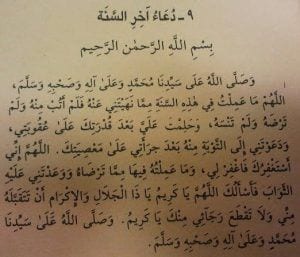 ٩ - دُعَاءُ آخِرِ السَّنَة
بِسْمِ اللَّهِ الرَّحْمٰنِ الرَّحِيمِ
وَصَلَّى اللَّهُ عَلَىٰ سَيِّدِنَا مُحَمَّدٍ وَعَلَىٰ آلِهِ وَصَحْبِهِ وَسَلَّمَ،
اللَّهُمَّ مَا عَمِلْتُ فِي هٰذِهِ السَّنَةِ مِمَّا نَهَيْتَنِي عَنْهُ فَلَمْ أَتُبْ مِنْهُ وَلَمْ
تَرْضَهُ وَلَمْ تَنْسَهُ، وَحَلِمْتَ عَلَيَّ بَعْدَ قُدْرَتِكَ عَلَىٰ عُقُوبَتِي،
وَدَعَوْتَنِي إِلَى التَّوْبَةِ مِنْهُ بَعْدَ جِرَأَتِي عَلَىٰ مَعْصِيَتِكَ. اللَّهُمَّ إِنِّي
أَسْتَغْفِرُكَ فَاغْفِرْ لِي، وَمَا عَمِلْتُهُ فِيهَا مِمَّا تَرْضَاهُ وَوَعَدْتَنِي عَلَيْهِ
الثَّوَابَ فَأَسْأَلُكَ اللَّهُمَّ يَا كَرِيمُ يَا ذَا الْجَلَالِ وَالْإِكْرَامِ أَنْ تَتَقَبَّلَهُ
مِنِّي وَلَا تَقْطَعَ رَجَائِي مِنْكَ يَا كَرِيمُ. وَصَلَّى اللَّهُ عَلَىٰ سَيِّدِنَا
مُحَمَّدٍ وَعَلَىٰ آلِهِ وَصَحْبِهِ وَسَلَّمَ.